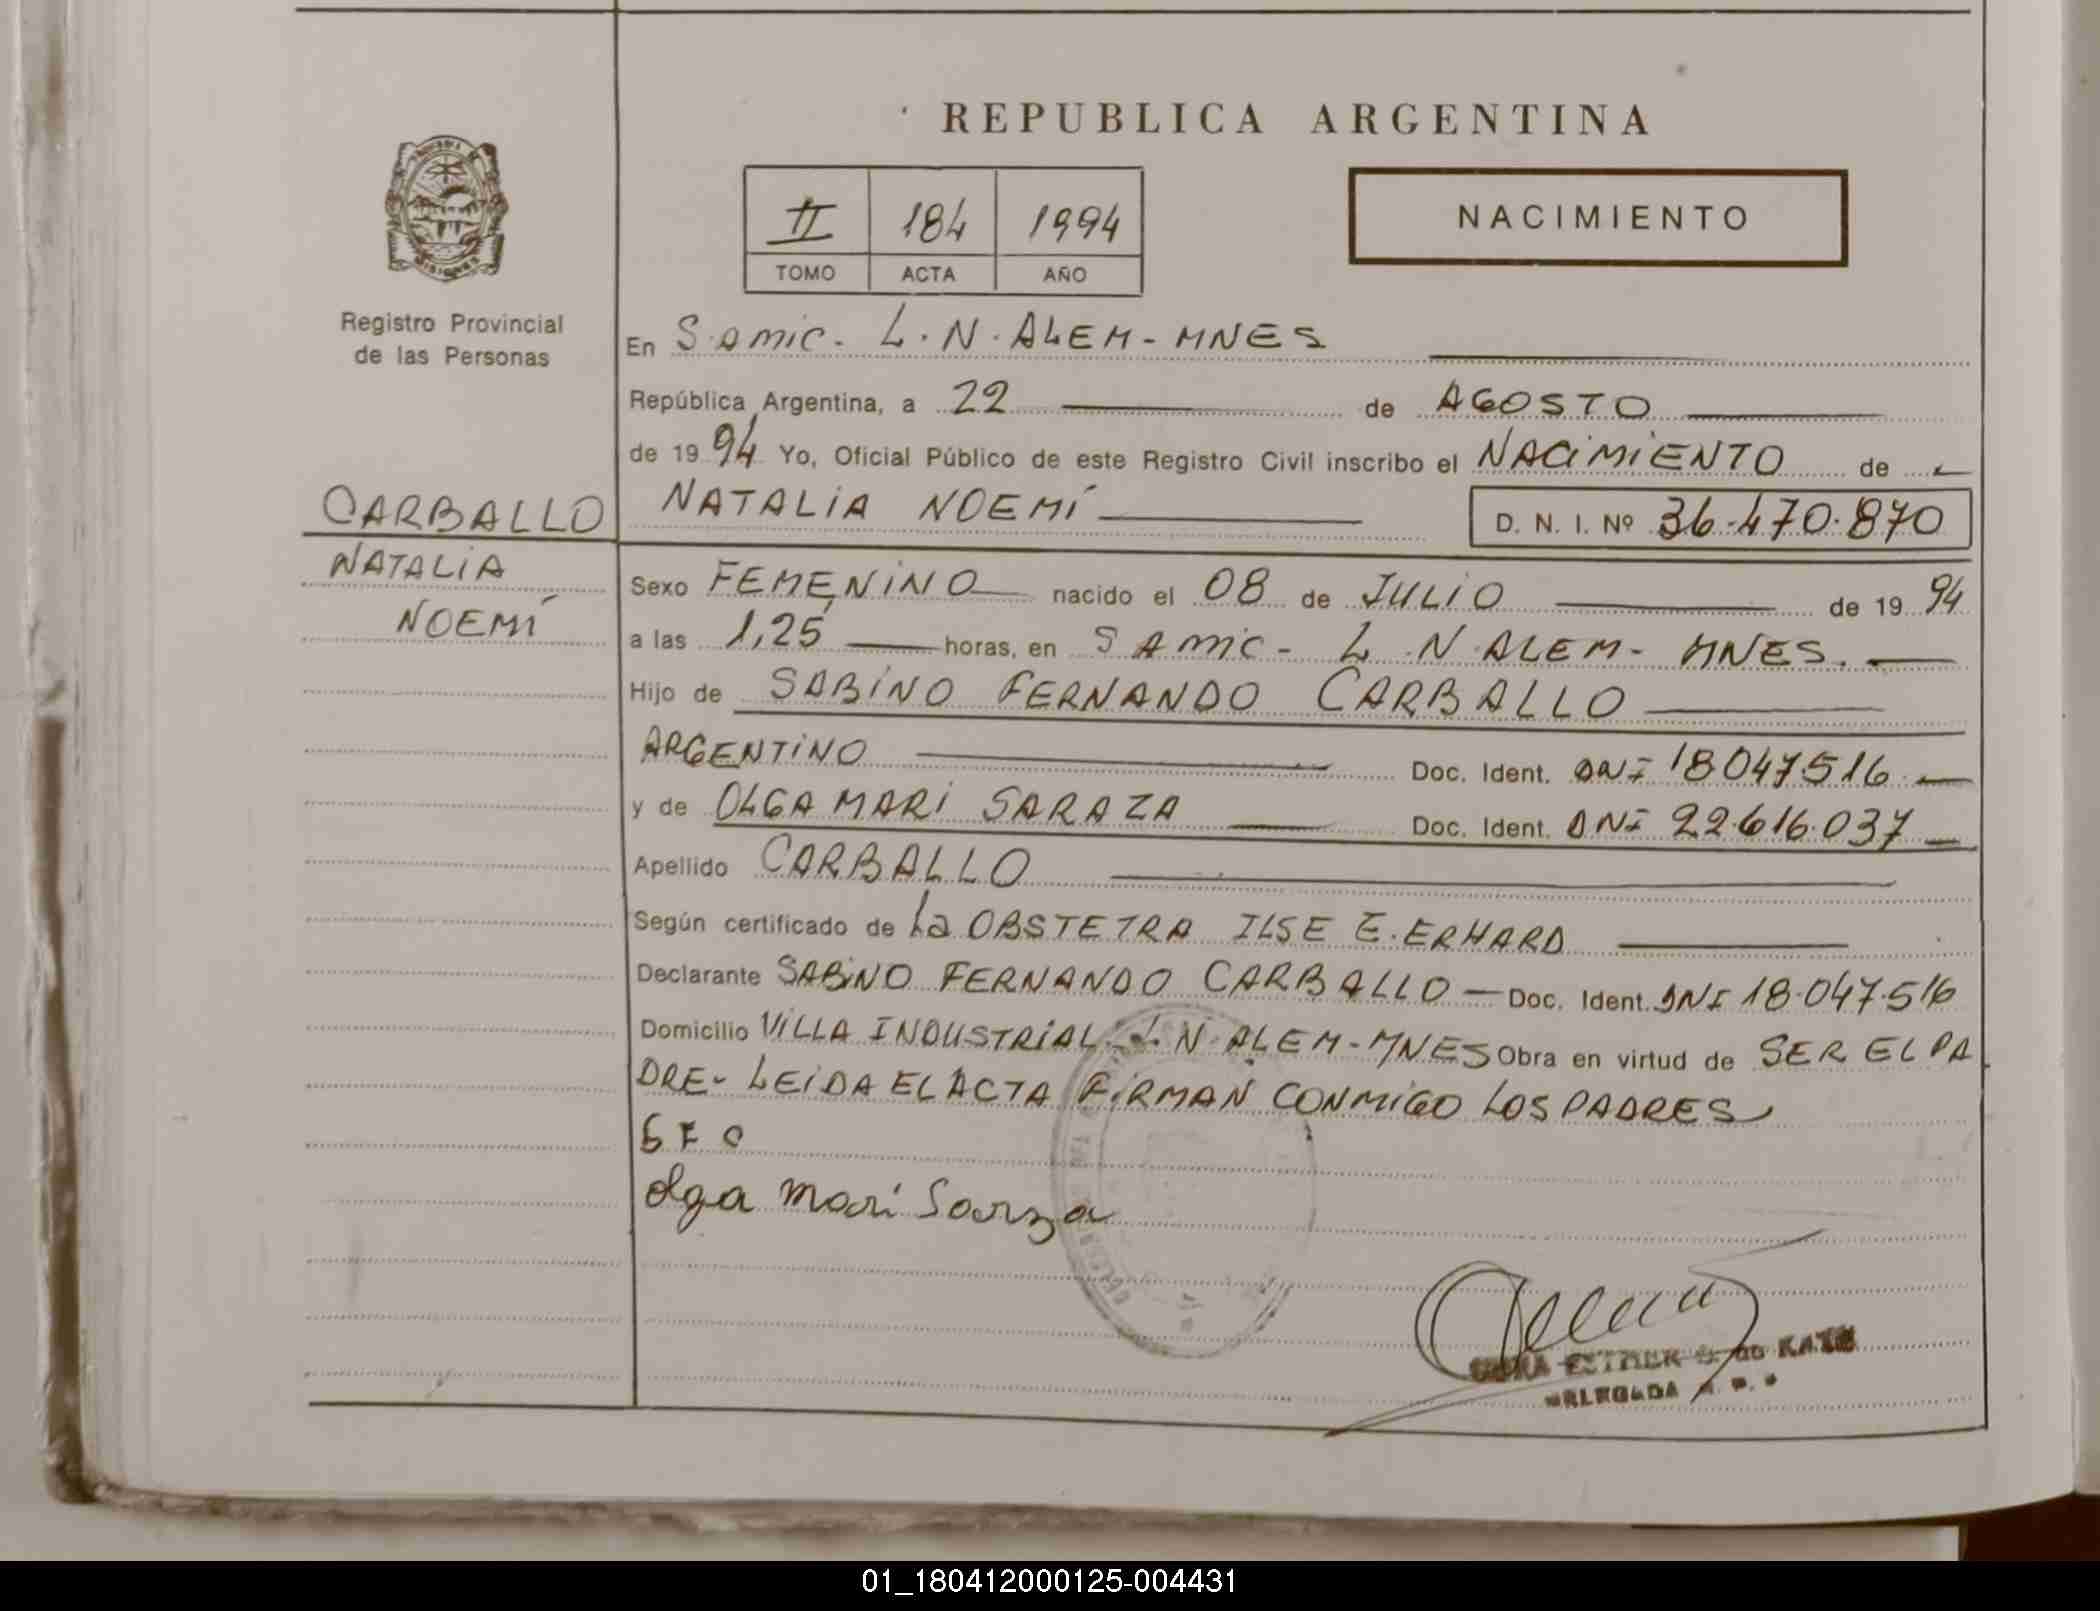 REPUBLICA ARGENTINA
II 184 1994
TOMO ACTA AÑO
NACIMIENTO
Registro Provincial
de las Personas
MISIONES
CARBALLO
NATALIA
NOEMÍ
En SAMIC. L.N.ALEM-MNES
República Argentina, a 22 de AGOSTO
de 1994 Yo, Oficial Público de este Registro Civil inscribo el NACIMIENTO de
NATALIA NOEMÍ D. N. I. Nº 36.470.870
Sexo FEMENINO nacido el 08 de JULIO de 1994
a las 1,25 horas, en SAMIC- L.N.ALEM- MNES.
Hijo de SABINO FERNANDO CARBALLO
ARGENTINO Doc. Ident. DNI 18047516
y de OLGA MARI SARAZA Doc. Ident. DNI 22.616.037
Apellido CARBALLO
Según certificado de La OBSTETRA ILSE E. ERHARD
Declarante SABINO FERNANDO CARBALLO - Doc. Ident. DNI 18.047.516
Domicilio VILLA INDUSTRIAL L.N.ALEM-MNES Obra en virtud de SER EL PA
DRE- LEIDA EL ACTA FIRMAN CONMIGO LOS PADRES
S F C
Olga Mari
ESTHER de KATZ
DELEGADA
01_180412000125-004431